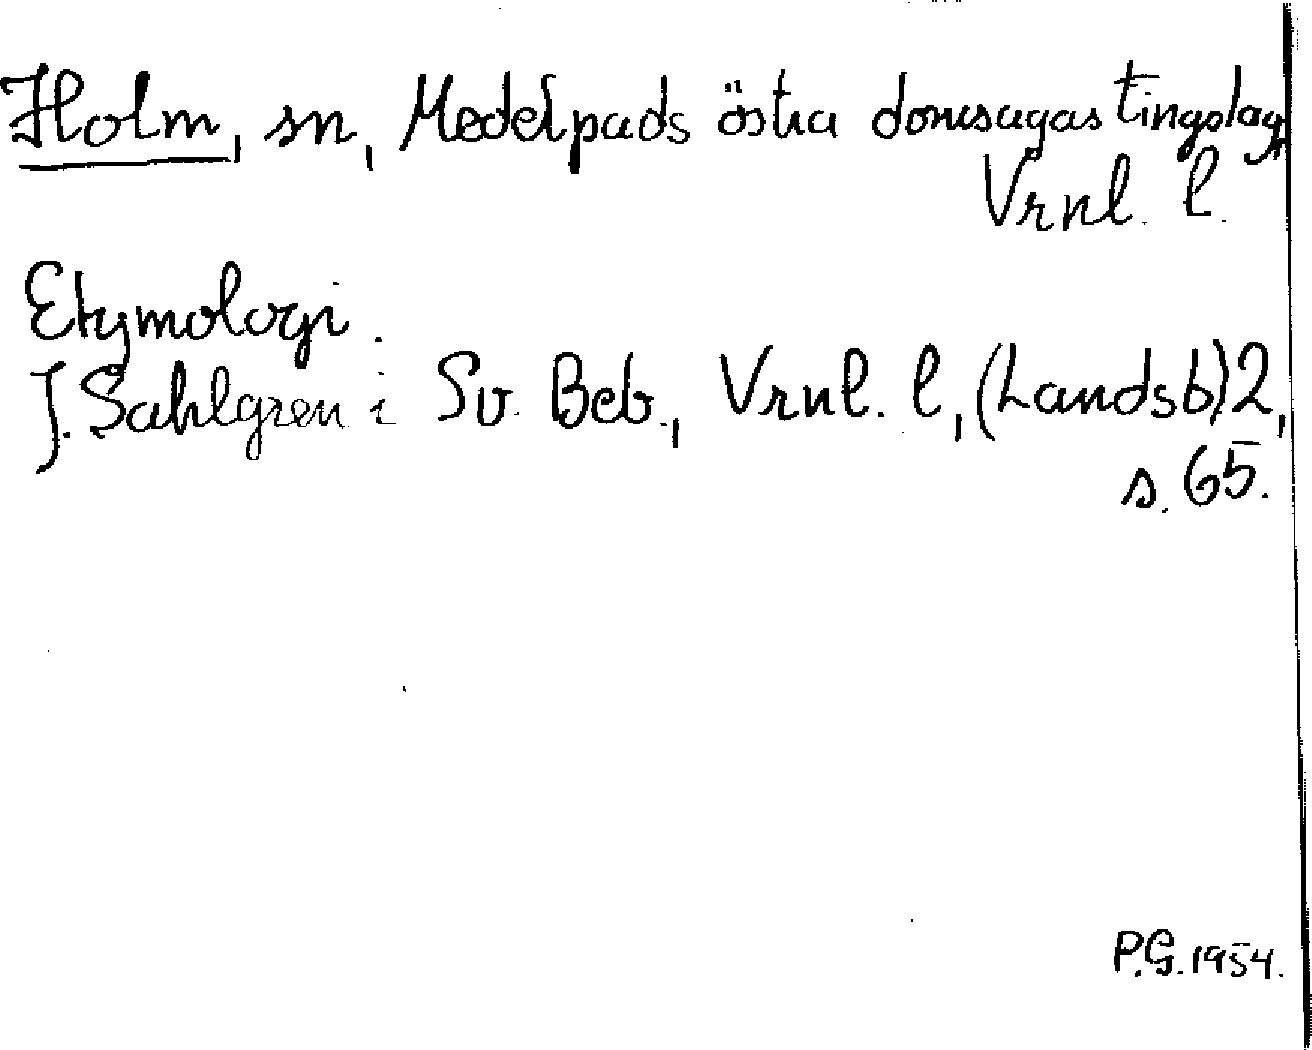 Holm, sn, Medelpads östra domsagas tingslag,
Vrnl. l.
Etymologi.
J. Sahlgren i Sv. Beb., Vrnl. l, (Landsb) 2,
s. 65.
P.G. 1954.